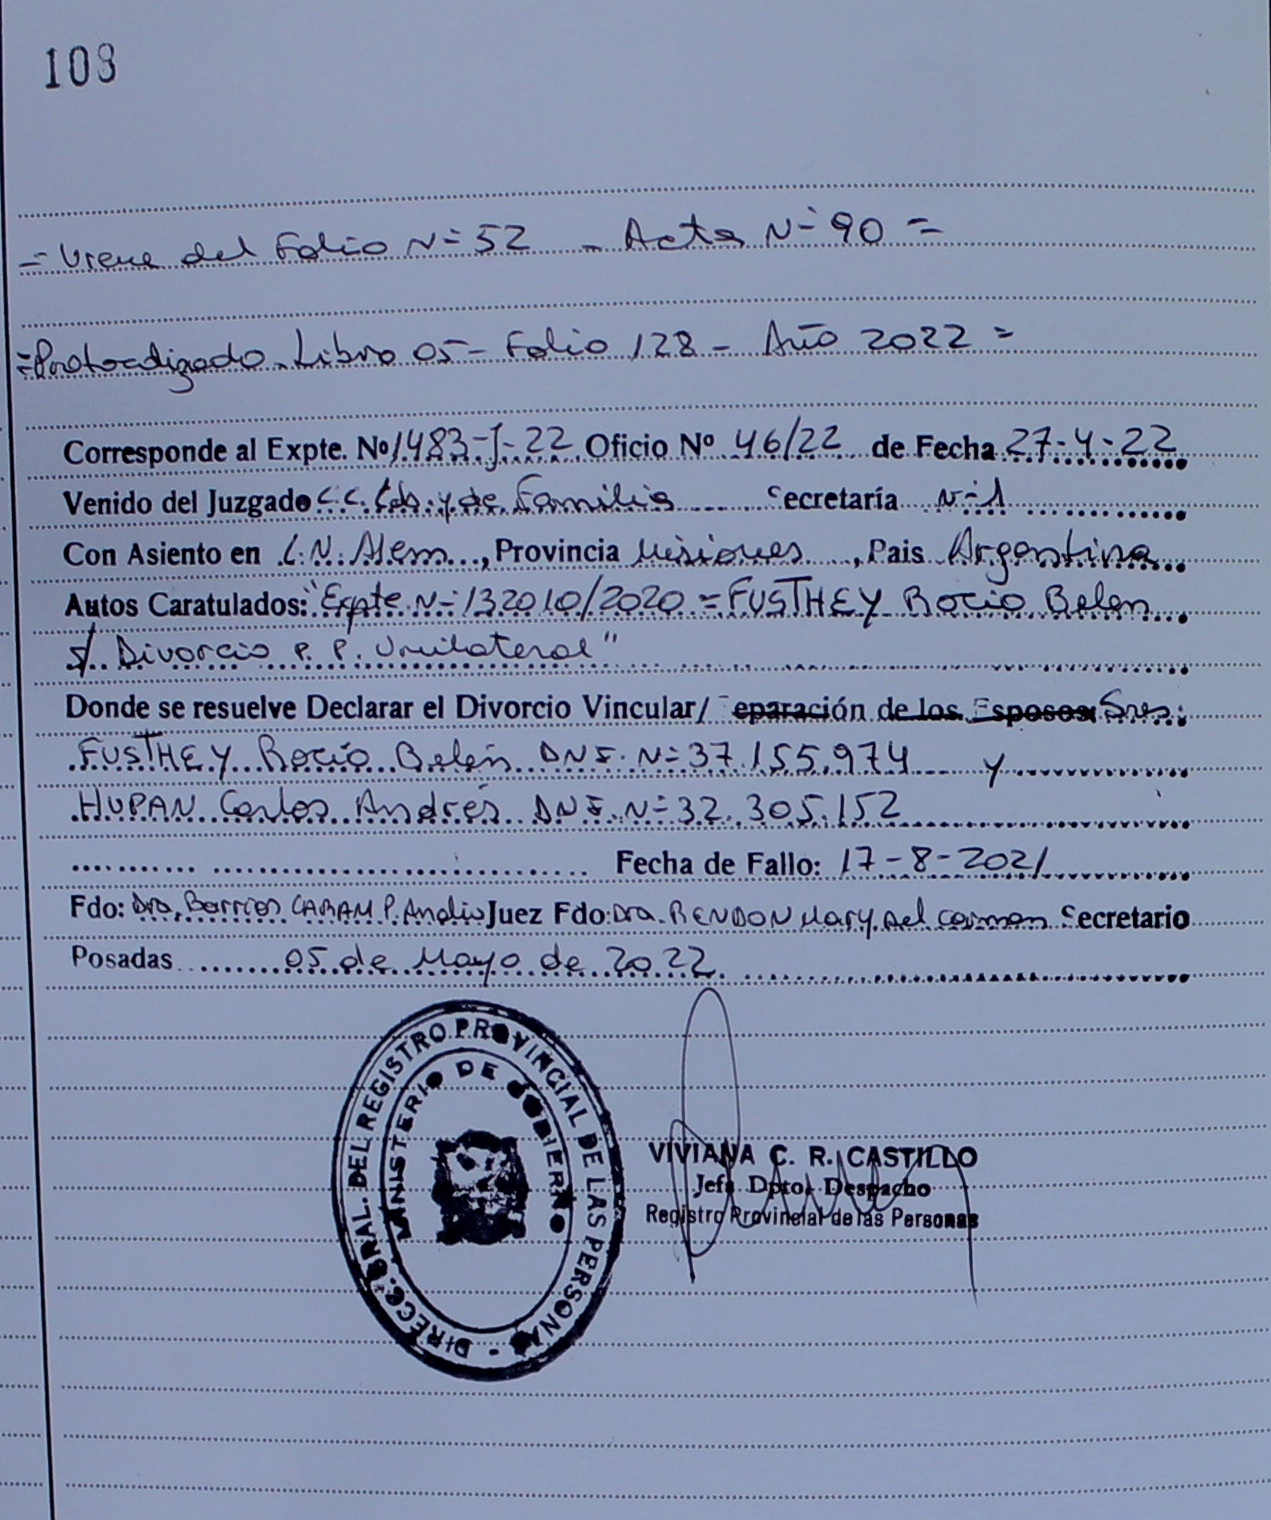 108
= Viene del Folio N= 52 - Acta N= 90 =
= Protocolizado - Libro 05 - Folio 128 - Año 2022 =
Corresponde al Expte. Nº 1483-J-22 Oficio Nº 46/22 de Fecha 27-4-22
Venido del Juzgado C.C. Lab. y de Familia Secretaría N=1
Con Asiento en L.N. Alem, Provincia Misiones, Pais Argentina
Autos Caratulados: "Expte N= 132010/2020 = FUSTHEY Rocio Belen
s/ Divorcio P. P. Unilateral"
Donde se resuelve Declarar el Divorcio Vincular/ eparación de los Esposos Sres:
FUSTHEY Rocío Belén DNI. N= 37.155.974 y
HUPAN Carlos Andrés DNI. N= 32.305.152
Fecha de Fallo: 17-8-2021
Fdo: Dra. Barrios CARAM P. Analis Juez Fdo: Dra. RENDON Mary del Carmen Secretario
Posadas 05 de Mayo de 2022
DIRECC. GRAL. DEL REGISTRO PROVINCIAL DE LAS PERSONAS -
MINISTERIO DE GOBIERNO
VIVIANA C. R. CASTILLO
Jefa Dpto. Despacho
Registro Provincial de las Personas